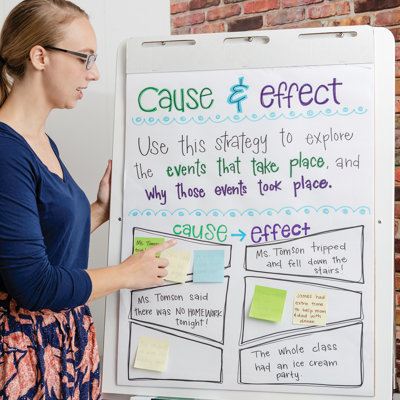 Cause & Effect
Use this strategy to explore
the events that take place, and
why those events took place.
cause → effect
Ms.
Tomson
Ms. Tomson tripped
and fell down the
stairs!
Ms. Tomson said
there was NO HOMEWORK
tonight!
James had
extra time
to help mom
& dad with
dinner
The whole class
had an ice cream
party.